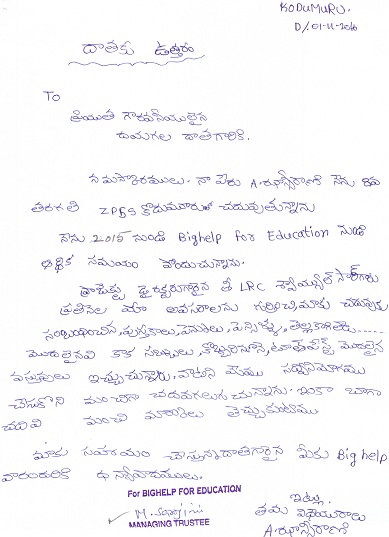 KODUMURU.
D/01-11-2016
దాతకు ఉత్తరం
To
శ్రీయుత గౌరవనీయులైన
దయగల దాతగారికి.
నమస్కారములు. నా పేరు A. ఝాన్సీరాణి నేను 8వ
తరగతి ZPHS కోడుమూరులో చదువుతున్నాను
నేను 2015 నుండి Bighelp For Education నుండి
ఆర్థిక సహాయం పొందుచున్నాను.
శ్రీ LRC
ప్రతినెల మా అవసరాలను గుర్తించి మాకు చదువుకు
సంబంధించిన, పుస్తకాలు, పెనులు, పెన్సిళ్ళు, తెల్లకాగితాలు......
మొదలైనవి కాక సబ్బులు, కొబ్బరినూనె, టూత్‌పేస్ట్ మొదలైన
వస్తువులు ఇచ్చుచున్నారు. వాటిని మేము సద్వినియోగము
చేసుకొని మంచిగా చదవగలుగుచున్నాను. ఇంకా బాగా
చదివి మంచి మార్కులు తెచ్చుకుంటాము
మాకు సహాయం చేస్తున్న దాతగారైన మీకు Big help
వారందరికి ధన్యవాదములు.
For BIGHELP FOR EDUCATION
M. Sarojini
MANAGING TRUSTEE
ఇట్లు
తమ విధేయురాలు
A. ఝాన్సీరాణి